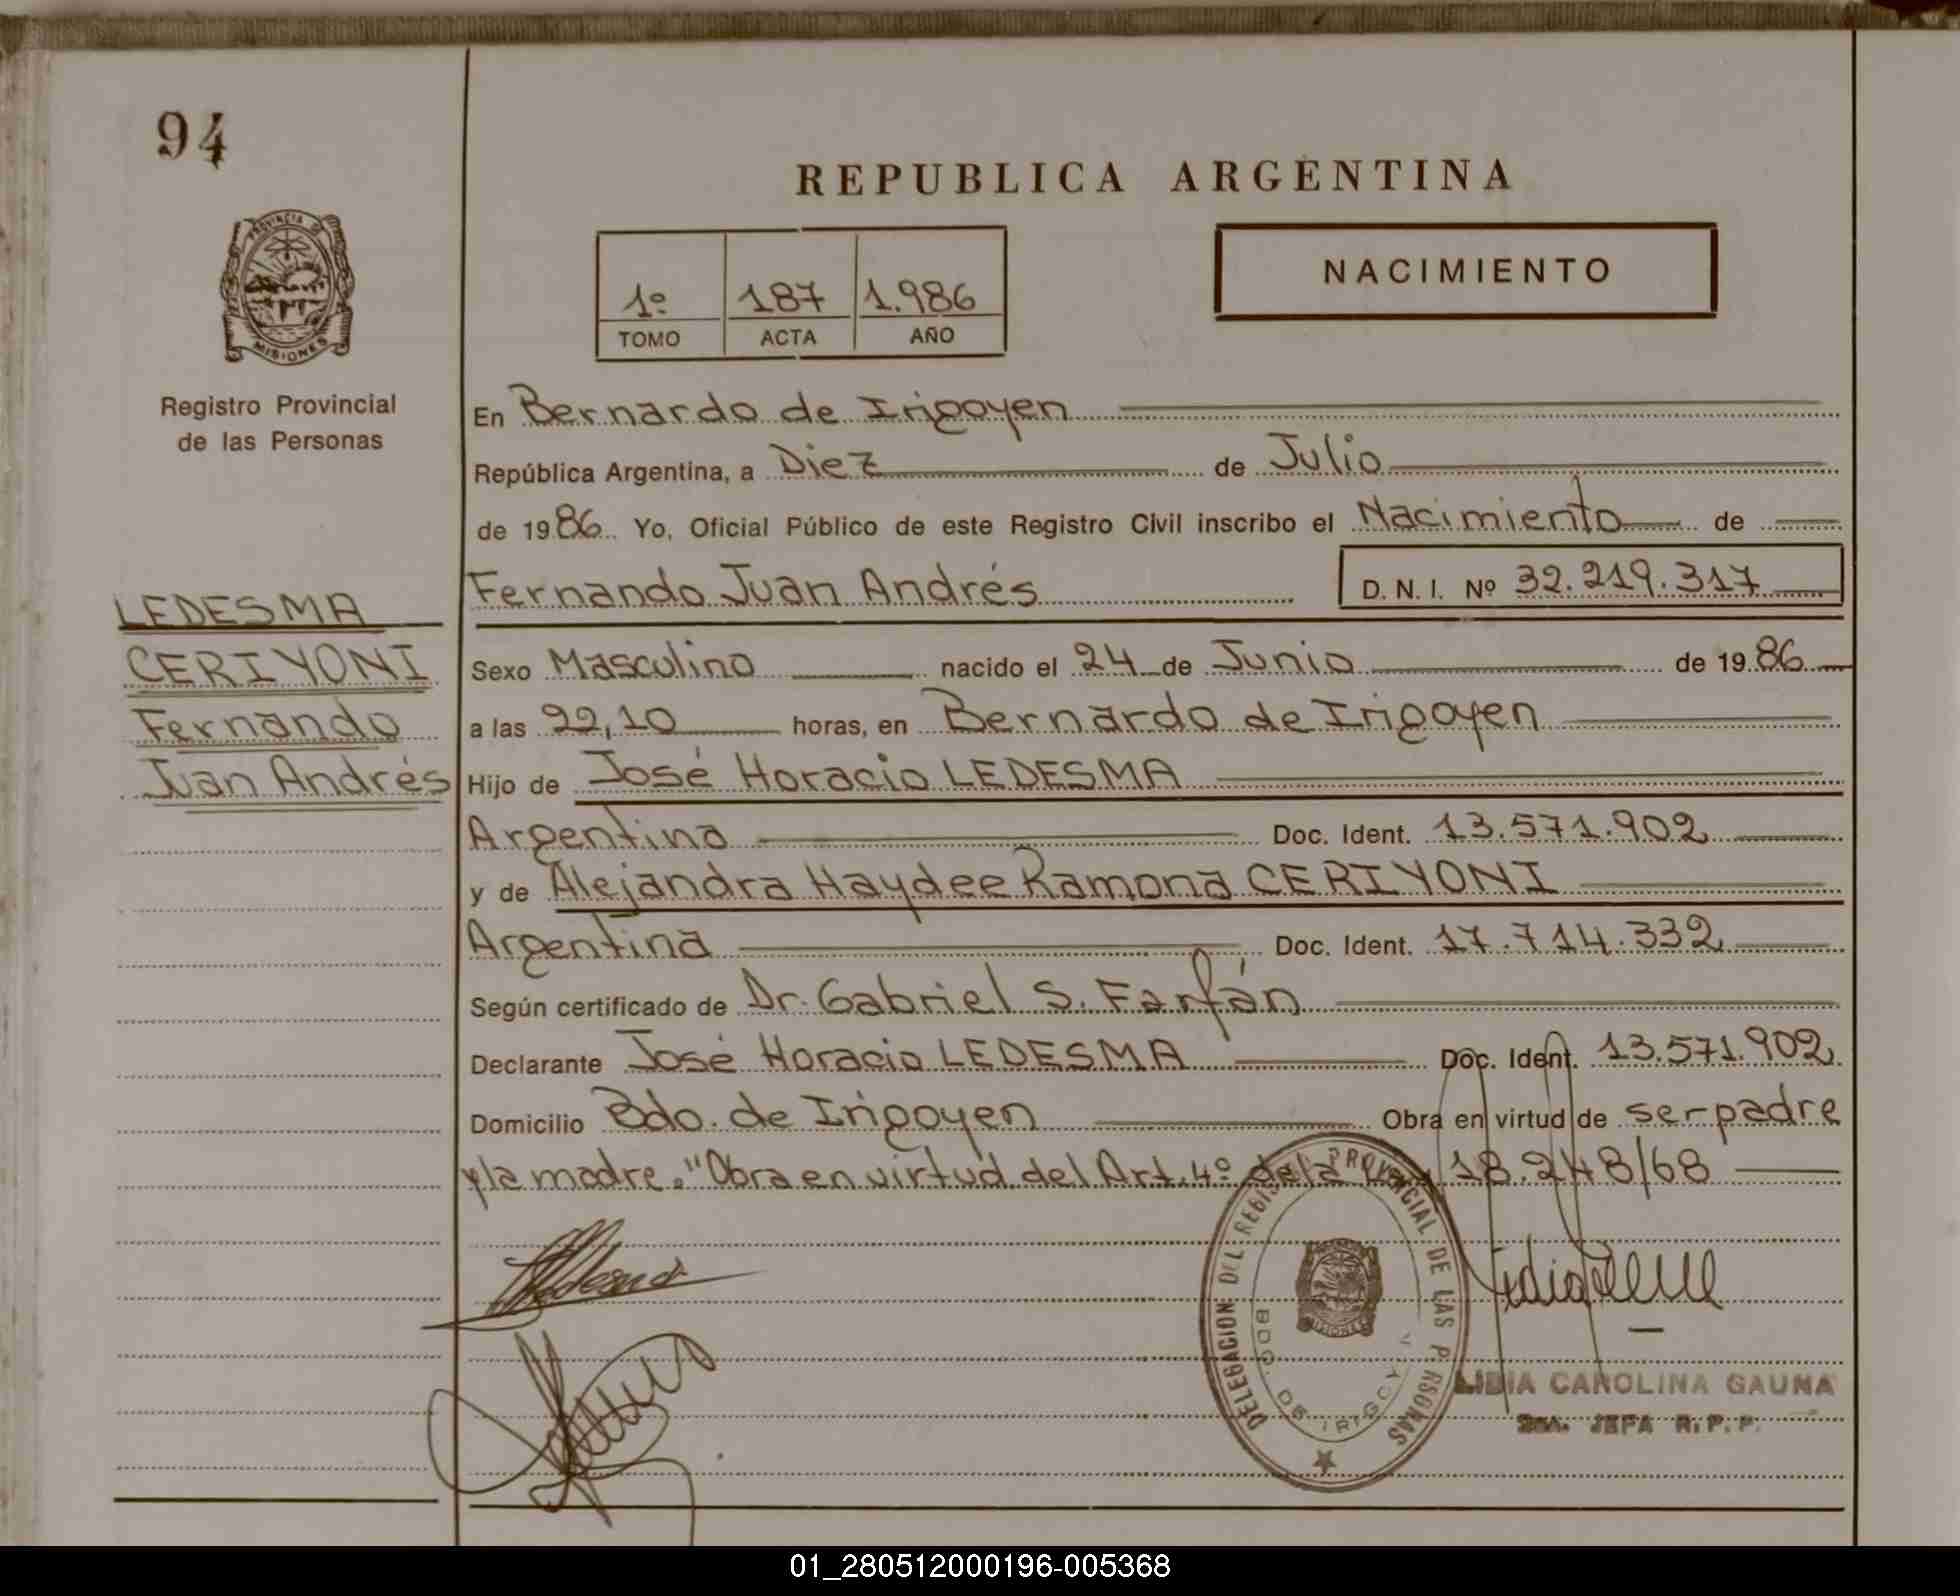 94
PROVINCIA D
MISIONES
Registro Provincial
de las Personas
LEDESMA
CERIYONI
Fernando
Juan Andrés
REPUBLICA ARGENTINA
1º 187 1.986
TOMO ACTA AÑO
NACIMIENTO
En Bernardo de Irigoyen
República Argentina, a Diez de Julio
de 1986 Yo, Oficial Público de este Registro Civil inscribo el Nacimiento de
Fernando Juan Andrés D. N. I. Nº 32.219.317
Sexo Masculino nacido el 24 de Junio de 1986
a las 22,10 horas, en Bernardo de Irigoyen
Hijo de José Horacio LEDESMA
Argentino Doc. Ident. 13.571.902
y de Alejandra Haydee Ramona CERIYONI
Argentina Doc. Ident. 17.714.332
Según certificado de Dr. Gabriel S. Farfán
Declarante José Horacio LEDESMA Doc. Ident. 13.571.902
Domicilio Bdo. de Irigoyen Obra en virtud de ser padre
y la madre. "Obra en virtud del Art. 4º de la 18.248/68
Ledesma
DELEGACION DEL REGIS PROVINCIAL DE LAS P RSONAS
BDO. DE IRIGOY
MISIONES
LIDIA CAROLINA GAUNA
JEFA R.P.P.
01_280512000196-005368